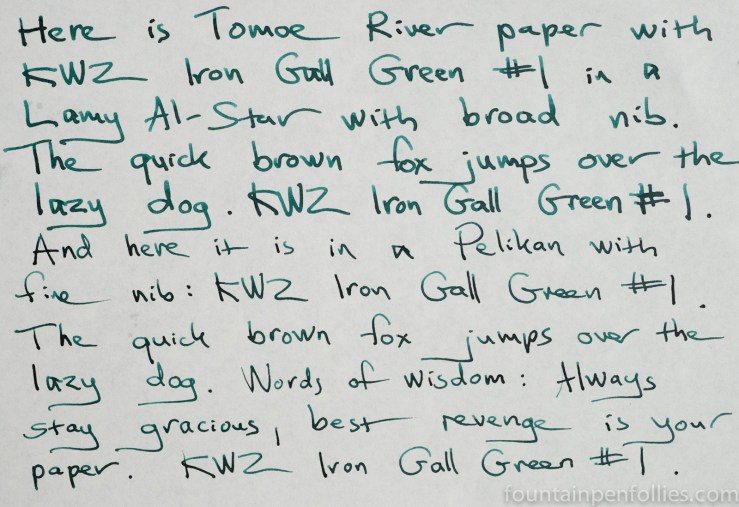 Here is Tomoe River paper with
KWZ Iron Gall Green #1 in a
Lamy Al-Star with broad nib.
The quick brown fox jumps over the
lazy dog. KWZ Iron Gall Green #1.
And here it is in a Pelikan with
fine nib: KWZ Iron Gall Green #1.
The quick brown fox jumps over the
lazy dog. Words of wisdom: Always
stay gracious, best revenge is your
paper. KWZ Iron Gall Green #1.
fountainpenfollies.com